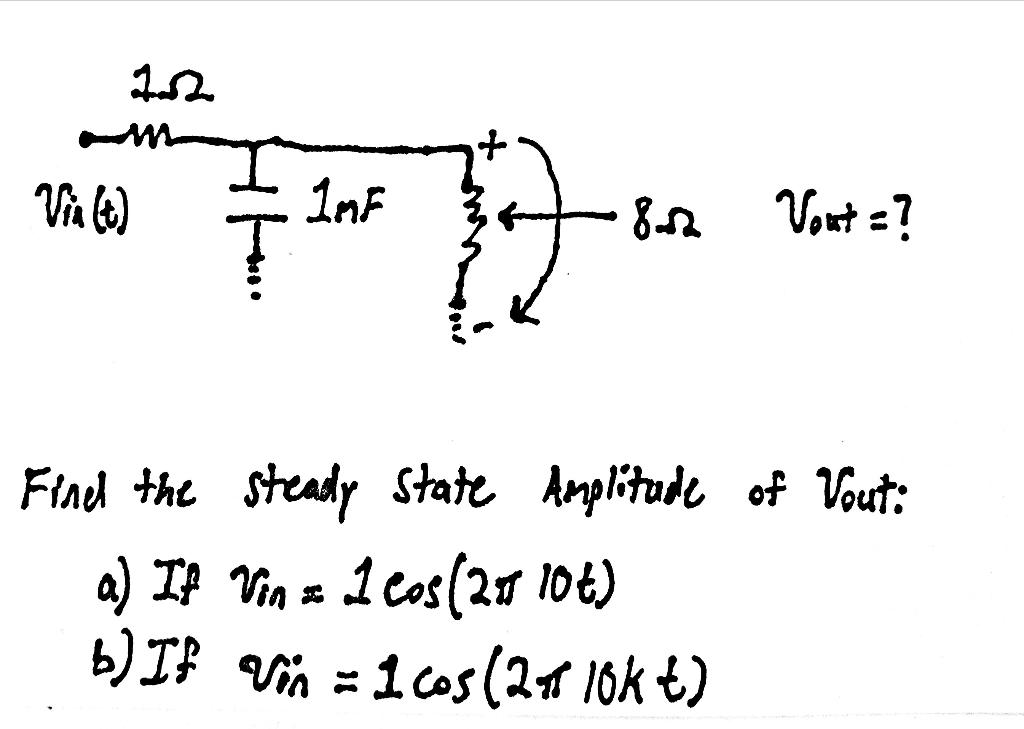 1Ω
+
Vin(t)
1mF
8Ω
Vout = ?
-
Find the steady state Amplitude of Vout:
a) If Vin = 1 cos(2π 10t)
b) If Vin = 1 cos(2π 10k t)